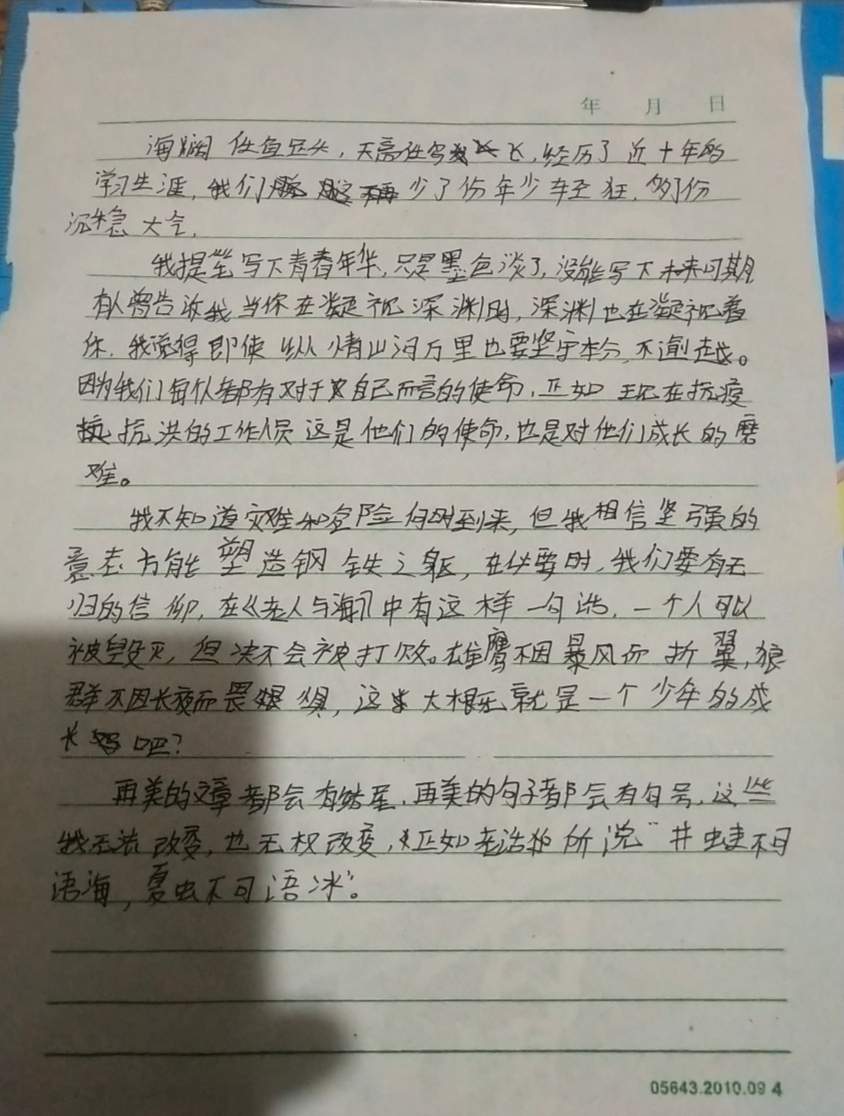 年 月 日
海阔任鱼跃,天高任鸟飞,经历了近十年的
学习生涯,我们少了份年少轻狂,多了份
沉稳大气,
我提笔写下青春年华,只是墨色淡了,没能写下未来可期
有人曾告诉我当你在凝视深渊时,深渊也在凝视着
你,我觉得即使纵情山河万里也要坚守本分,不逾越。
因为我们每个人都有对于自己而言的使命,正如现在抗疫
抗洪的工作人员这是他们的使命,也是对他们成长的磨
难。
我不知道灾难和危险何时到来,但我相信坚强的
意志方能塑造钢铁之躯,在必要时,我们要有无
归的信仰,在《老人与海》中有这样一句话,一个人可以
被毁灭,但决不会被打败。雄鹰不因暴风而折翼,狼
群不因长夜而畏惧,这大概就是一个少年的成
长吧?
再美的文章都会有结尾,再美的句子都会有句号,这些
我无法改变,也无权改变,正如老话所说“井蛙不可
语海,夏虫不可语冰”。
05643.2010.09 4